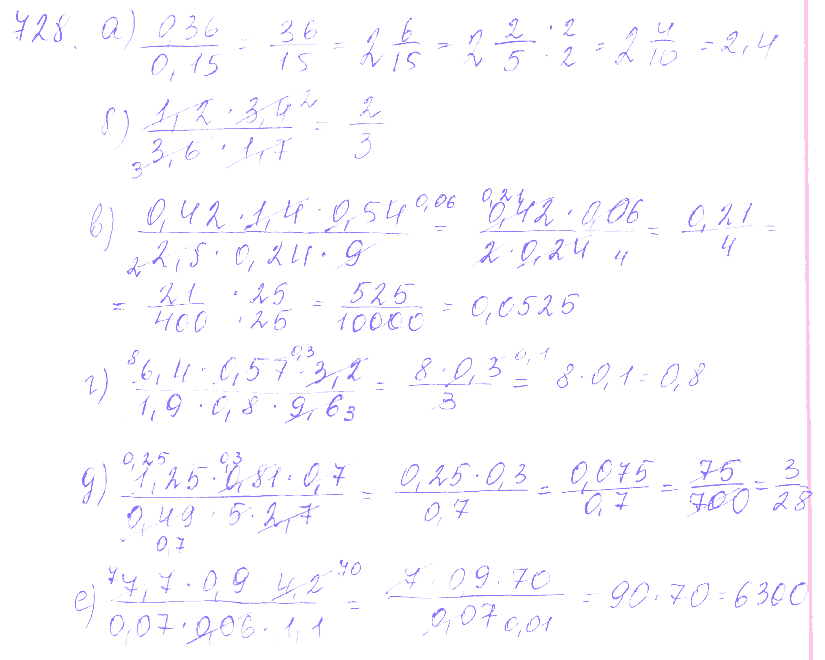 728. а) 0,36/0,15 = 36/15 = 2 6/15 = 2 2/5 ·2/·2 = 2 4/10 = 2,4
б) 1,2 · 3,4 2 / 3 3,6 · 1,7 = 2/3
в) 0,42 · 1,4 · 0,54 0,06 / 2 2,8 · 0,24 · 9 = 0,21 0,42 · 0,06 / 2 · 0,24 4 = 0,21/4 =
= 21/400 ·25/·25 = 525/10000 = 0,0525
г) 8 6,4 · 0,57 0,3 · 3,2 / 1,9 · 0,8 · 9,6 3 = 8 · 0,3 0,1 / 3 = 8 · 0,1 = 0,8
д) 0,25 1,25 · 0,3 0,81 · 0,7 / 0,49 0,7 · 5 · 2,7 = 0,25 · 0,3 / 0,7 = 0,075/0,7 = 75/700 = 3/28
е) 7 7,7 · 0,9 · 4,2 70 / 0,07 · 0,06 · 1,1 = 7 · 09 · 70 / 0,07 0,01 = 90 · 70 = 6300